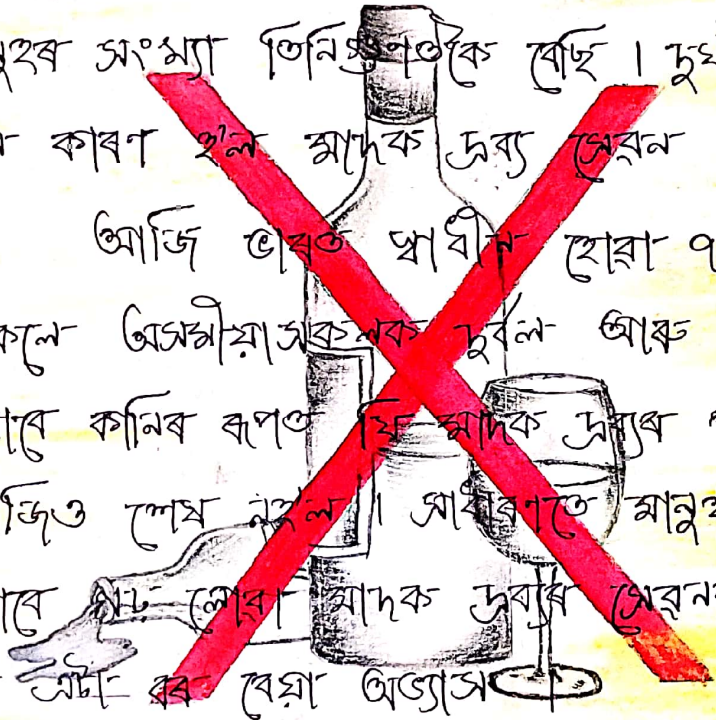 নুহৰ সংখ্যা তিনিগুণতকৈ বেছি । দুৰ্ঘ
কাৰণ হ'ল মাদক দ্ৰব্য সেৱন
আজি ভাৰত স্বাধীন হোৱা ৭
কলে অসমীয়াসকলক দুৰ্বল আৰু
াবে কানিৰ ৰূপত যি মাদক দ্ৰব্যৰ
জিও শেষ নহ'ল । সাধাৰণতে মানুহ
াবে গঢ় লোৱা মাদক দ্ৰব্যৰ সেৱনৰ
এটা বৰ বেয়া অভ্যাস ।